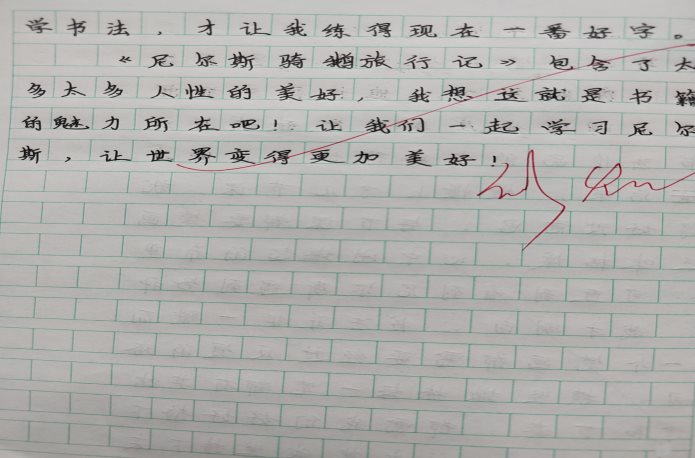 学书法，才让我练得现在一番好字。
《尼尔斯骑鹅旅行记》包含了太
多太多人性的美好，我想这就是书籍
的魅力所在吧！让我们一起学习尼尔
斯，让世界变得更加美好！